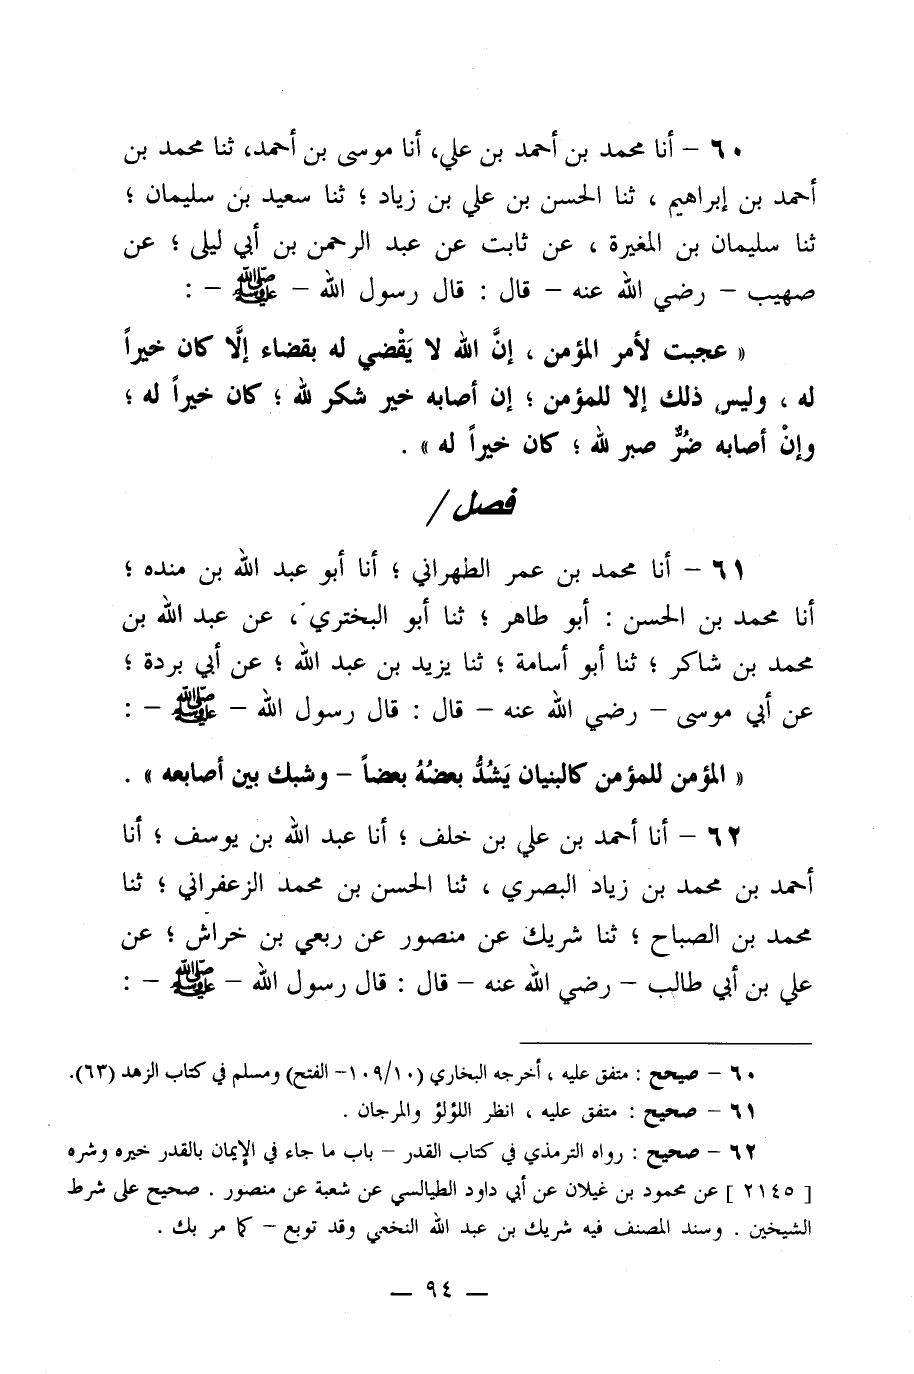 ٦٠ – أنا محمد بن أحمد بن علي، أنا موسى بن أحمد، ثنا محمد بن
أحمد بن إبراهيم ، ثنا الحسن بن علي بن زياد ؛ ثنا سعيد بن سليمان ؛
ثنا سليمان بن المغيرة ، عن ثابت عن عبد الرحمن بن أبي ليلى ؛ عن
صهيب – رضي الله عنه – قال : قال رسول الله – ﷺ – :
« عجبت لأمر المؤمن ، إنَّ الله لا يَقْضي له بقضاء إلَّا كان خيراً
له ، وليس ذلك إلا للمؤمن ؛ إن أصابه خير شكر لله ؛ كان خيراً له ؛
وإنْ أصابه ضُرٌّ صبر لله ؛ كان خيراً له » .
فصل /
٦١ – أنا محمد بن عمر الطهراني ؛ أنا أبو عبد الله بن منده ؛
أنا محمد بن الحسن : أبو طاهر ؛ ثنا أبو البختري ، عن عبد الله بن
محمد بن شاكر ؛ ثنا أبو أسامة ؛ ثنا يزيد بن عبد الله ؛ عن أبي بردة ؛
عن أبي موسى – رضي الله عنه – قال : قال رسول الله – ﷺ – :
« المؤمن للمؤمن كالبنيان يَشُدُّ بعضُهُ بعضاً – وشبك بين أصابعه » .
٦٢ – أنا أحمد بن علي بن خلف ؛ أنا عبد الله بن يوسف ؛ أنا
أحمد بن محمد بن زياد البصري ، ثنا الحسن بن محمد الزعفراني ؛ ثنا
محمد بن الصباح ؛ ثنا شريك عن منصور عن ربعي بن خراش ؛ عن
علي بن أبي طالب – رضي الله عنه – قال : قال رسول الله – ﷺ – :
٦٠ – صيحح : متفق عليه ، أخرجه البخاري (١٠٩/١٠– الفتح) ومسلم في كتاب الزهد (٦٣).
٦١ – صحيح : متفق عليه ، انظر اللؤلؤ والمرجان .
٦٢ – صحيح : رواه الترمذي في كتاب القدر – باب ما جاء في الإيمان بالقدر خيره وشره
[ ٢١٤٥ ] عن محمود بن غيلان عن أبي داود الطيالسي عن شعبة عن منصور . صحيح على شرط
الشيخين . وسند المصنف فيه شريك بن عبد الله النخعي وقد توبع – كما مر بك .
— ٩٤ —